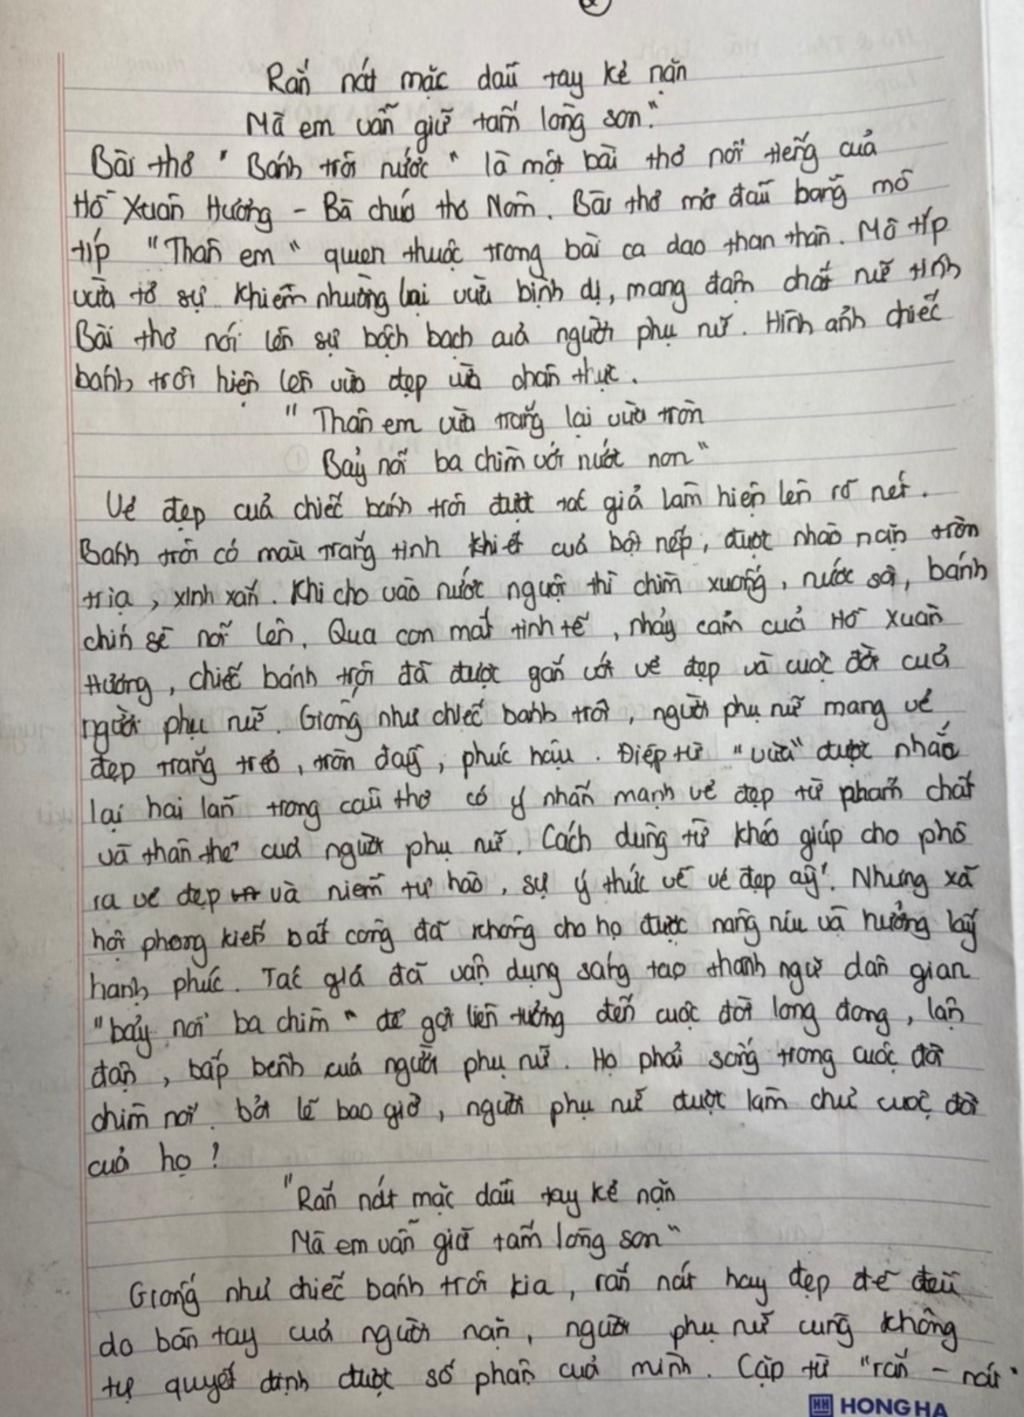 2
Rắn nát mặc dầu tay kẻ nặn
Mà em vẫn giữ tấm lòng son."
Bài thơ "Bánh trôi nước" là một bài thơ nổi tiếng của
Hồ Xuân Hương - Bà chúa thơ Nôm. Bài thơ mở đầu bằng mô
típ "Thân em" quen thuộc trong bài ca dao than thân. Mô típ
vừa tỏ sự khiêm nhường lại vừa bình dị, mang đậm chất nữ tính
Bài thơ nói lên sự bộch bạch của người phụ nữ. Hình ảnh chiếc
bánh trôi hiện lên vừa đẹp vừa chân thực.
"Thân em vừa trắng lại vừa tròn
Bảy nổi ba chìm với nước non"
Vẻ đẹp của chiếc bánh trôi được tác giả làm hiện lên rõ nét.
Bánh trôi có màu trắng tinh khiết của bột nếp, được nhào nặn tròn
trịa, xinh xắn. Khi cho vào nước nguội thì chìm xuống, nước sôi, bánh
chín sẽ nổi lên. Qua con mắt tinh tế, nhảy cảm của Hồ Xuân
Hương, chiếc bánh trội đã được gắn với vẻ đẹp và cuộc đời của
người phụ nữ. Giống như chiếc bánh trôi, người phụ nữ mang vẻ
đẹp trắng trẻo, tròn đầy, phúc hậu. Điệp từ "vừa" được nhắc
lại hai lần trong câu thơ có ý nhấn mạnh vẻ đẹp từ phẩm chất
và thân thể của người phụ nữ. Cách dùng từ khéo giúp cho phô
ra vẻ đẹp và niềm tự hào, sự ý thức về vẻ đẹp ấy. Nhưng xã
hội phong kiến bất công đã không cho họ được nâng niu và hưởng lấy
hạnh phúc. Tác giả đã vận dụng sáng tạo thành ngữ dân gian
"bảy nổi ba chìm" để gợi liên tưởng đến cuộc đời long đong, lận
đận, bấp bênh của người phụ nữ. Họ phải sống trong cuộc đời
chìm nổi bởi lẽ bao giờ, người phụ nữ được làm chủ cuộc đời
của họ!
"Rắn nát mặc dầu tay kẻ nặn
Mà em vẫn giữ tấm lòng son"
Giống như chiếc bánh trôi kia, rắn nát hay đẹp đẽ đều
do bàn tay của người nặn, người phụ nữ cũng không
tự quyết định được số phận của mình. Cặp từ "rắn - nát"
HH HONG HA